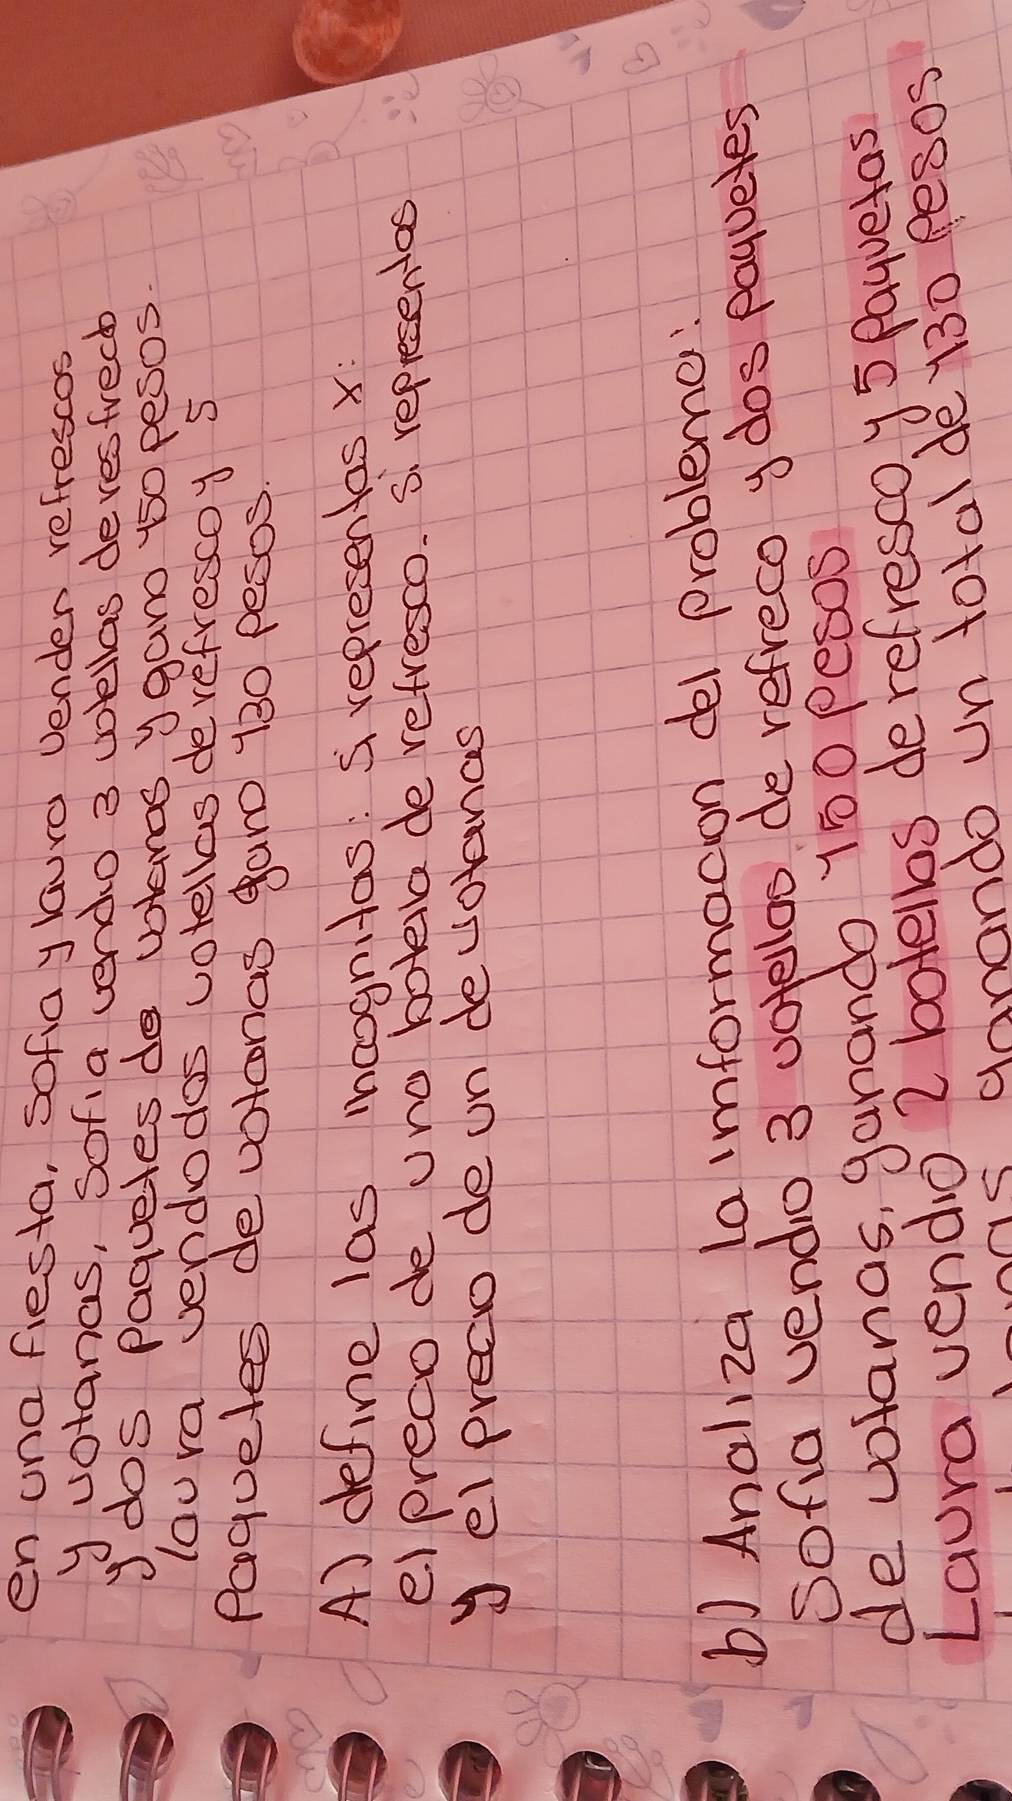 en una fiesta, Sofia y laura venden refrescos
y votanas, Sofia vendio 3 votellas de resfreco
y dos paquetes de votanas y gano 150 pesos.
laura vendio dos votellas de refresco y 5
paquetes de votanas gano 130 pesos.
A) define las incognitas: si representas x:
el precio de una botella de refresco. si representas
y el precio de un de votanas
b) Analiza la informacion del problema:
Sofia vendio 3 votellas de refreco y dos paquetes
de votanas, ganando 150 pesos
Laura vendio 2 botellas de refresco y 5 paquetas
ganando un total de 130 pesos